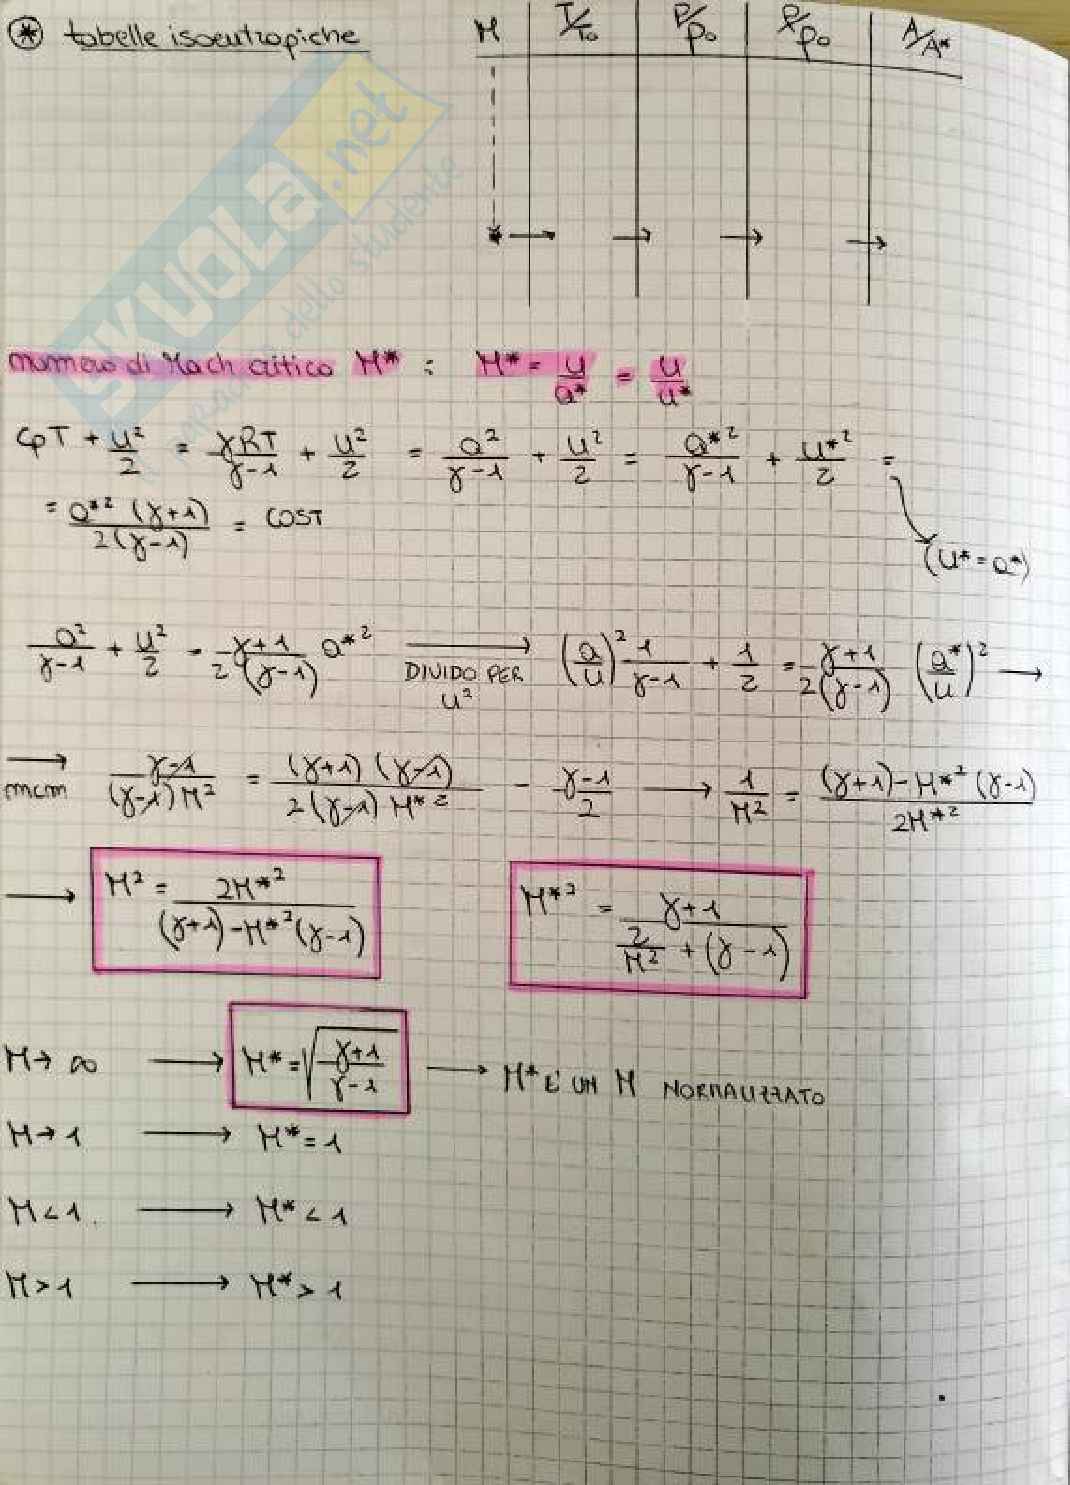 ⊛ tabelle isoentropiche M T/T₀ P/P₀ ρ/ρ₀ A/A*
SKUOLA.net
dello studente
numero di Mach critico M* : M* = u/a* = u/u*
cpT + u²/2 = γRT/(γ-1) + u²/2 = a²/(γ-1) + u²/2 = a*²/(γ-1) + u*²/2 =
= a*²(γ+1)/2(γ-1) = COST
(u* = a*)
a²/(γ-1) + u²/2 = (γ+1)/2(γ-1) a*² → DIVIDO PER u² (a/u)² 1/(γ-1) + 1/2 = (γ+1)/2(γ-1) (a*/u)² →
→ mcm (γ-1)/(γ-1)M² = (γ+1)(γ-1)/2(γ-1)M*² - (γ-1)/2 → 1/M² = ((γ+1)-M*²(γ-1))/2M*²
→ M² = 2M*²/((γ+1)-M*²(γ-1)) M*² = (γ+1)/(2/M² + (γ-1))
M → ∞ → M* = √((γ+1)/(γ-1)) → M* E' UN M NORMALIZZATO
M → 1 → M* = 1
M < 1. → M* < 1
M > 1 → M* > 1